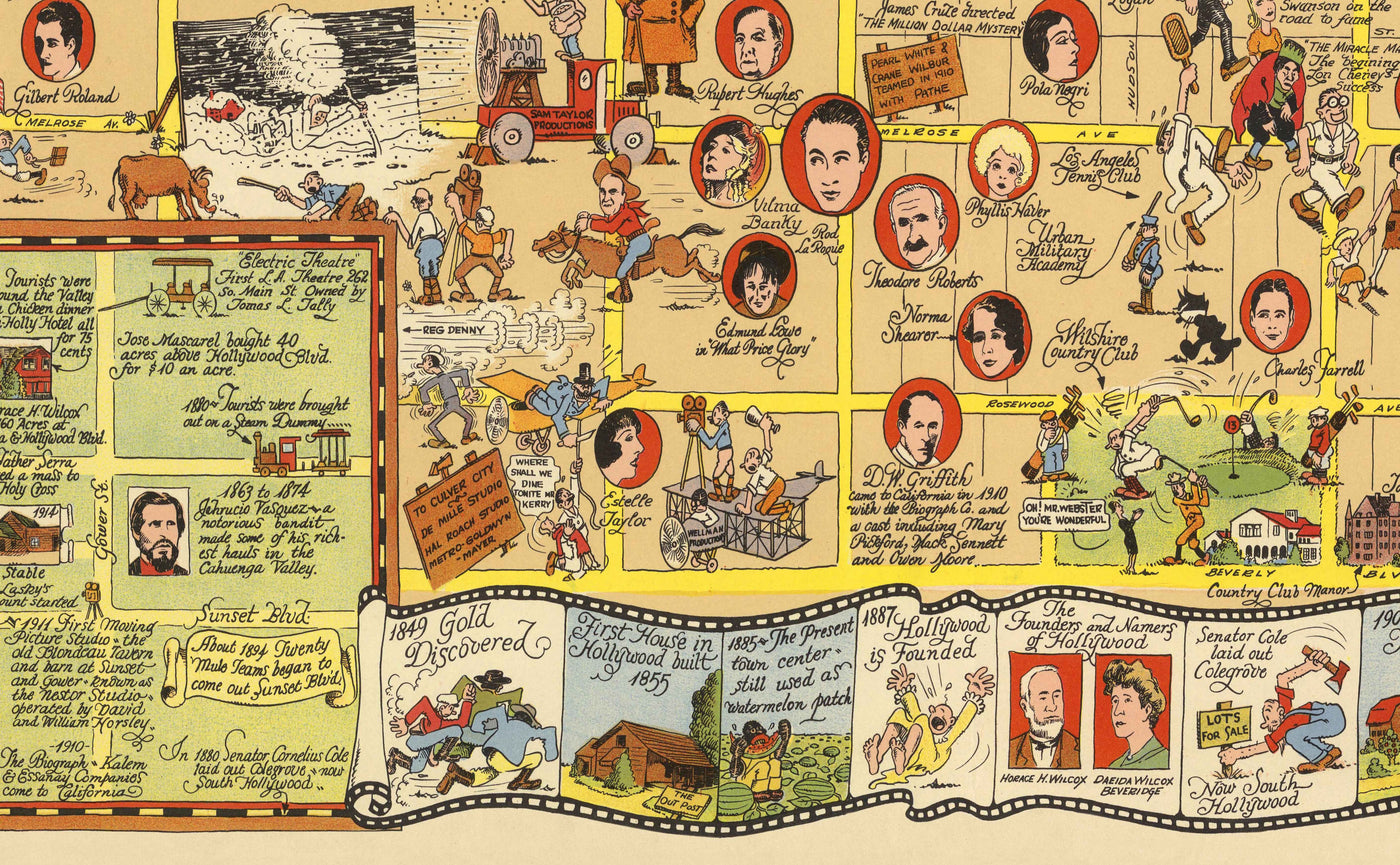 Gilbert Roland
MELROSE AV.
SAM TAYLOR
PRODUCTIONS
Rupert Hughes
James Cruze directed
"THE MILLION DOLLAR MYSTERY"
PEARL WHITE &
CRANE WILBUR
TEAMED IN 1910
WITH PATHE
Pola Negri
HUDSON
Swanson on the
road to fame
ST.
"THE MIRACLE MA
The begining
Lon Cheney's
Success
MELROSE AVE
Vilma
Banky
Rod
La Roque
Phyllis Haver
Los Angeles
Tennis Club
Theodore Roberts
Urban
Military
Academy
Edmund Lowe
in "What Price Glory"
Norma
Shearer
Wilshire
Country Club
Charles Farrell
REG DENNY
ROSEWOOD
AVE
Tourists were
ound the Valley
Chicken dinner
Holly Hotel all
for 75
cents
"Electric Theatre"
First L.A. Theatre 262
So. Main St. Owned by
Tomas L. Tally
Jose Mascarel bought 40
acres above Hollywood Blvd.
for $10 an acre.
race H. Wilcox
60 Acres at
a & Hollywood Blvd.
1880~Tourists were brought
out on a Steam Dummy
ather Serra
ed a mass to
Holy Cross
1914
Stable
Lasky's
ount started
Gower St.
1863 to 1874
Jihrucio Vasquez~a
notorious bandit
made some of his rich-
est hauls in the
Cahuenga Valley.
Sunset Blvd.
1911 First Moving
Picture Studio~the
old Blondeau Tavern
and barn at Sunset
and Gower~known as
the Nestor Studio~
operated by David
and William Horsley.
About 1894 Twenty
Mule Teams began to
come out Sunset Blvd.
-1910-
The Biograph~Kalem
& Essanay Companies
come to California
In 1880 Senator Cornelius Cole
laid out Colegrove~now
South Hollywood
TO CULVER CITY
DE MILLE STUDIO
HAL ROACH STUDIO
METRO-GOLDWYN
-MAYER
WHERE
SHALL WE
DINE
TONITE MR
KERRY
Estelle
Taylor
WELLMAN
PRODUCTIONS
D.W. Griffith
came to California in 1910
with the Biograph Co. and
a cast including Mary
Pickford, Mack Sennett
and Owen Moore
13
OH! MR. WEBSTER
YOU'RE WONDERFUL
BEVERLY
BLV
Country Club Manor
1849 Gold
Discovered
First House in
Hollywood built
1855
THE
OUT POST
1885~The Present
town center~
still used as
watermelon patch
1887
Hollywood
is Founded
The
Founders and Namers
of Hollywood
HORACE H. WILCOX
DAEIDA WILCOX
BEVERIDGE
Senator Cole
laid out
Colegrove
LOTS
FOR SALE
Now South
Hollywood